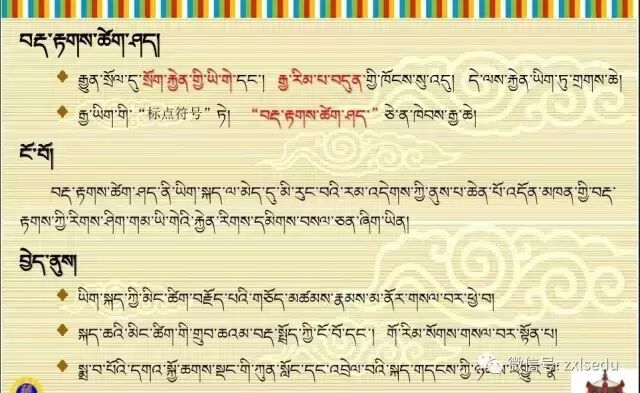 བརྡ་རྟགས་ཚེག་ཤད།
རྒྱུན་སྲོལ་དུ་སྲོག་རྐྱེན་གྱི་ཡི་གེ་དང་། རྒྱ་རིམ་པ་བདུན་གྱི་ཁོངས་སུ་འདུ། དེ་ལས་རྐྱེན་ཡིག་ཏུ་གྲགས་ཆེ།
རྒྱ་ཡིག་གི་“标点符号”ཏེ། “བརྡ་རྟགས་ཚེག་ཤད་”ཅེ་ན་ཁེབས་རྒྱ་ཆེ།
ངོ་བོ།
བརྡ་རྟགས་ཚེག་ཤད་ནི་ཡིག་སྐད་ལ་མེད་དུ་མི་རུང་བའི་རམ་འདེགས་ཀྱི་ནུས་པ་ཆེན་པོ་འདོན་མཁན་གྱི་བརྡ་
རྟགས་ཀྱི་རིགས་ཤིག་གམ་ཡི་གེའི་རྐྱེན་རིགས་དམིགས་བསལ་ཅན་ཞིག་ཡིན།
བྱེད་ནུས།
ཡིག་སྐད་ཀྱི་མིང་ཚིག་བརྗོད་པའི་གཅོད་མཚམས་རྣམས་མ་ནོར་གསལ་བར་ཕྱེ་བ།
སྐད་ཆའི་མིང་ཚིག་གི་གྲུབ་ཆའམ་བརྡ་སྤྲོད་ཀྱི་ངོ་བོ་དང་། གོ་རིམ་སོགས་གསལ་བར་སྟོན་པ།
སྨྲ་བ་པོའི་དགའ་སྐྱོ་ཆགས་སྡང་གི་ཀུན་སློང་དང་འབྲེལ་བའི་སྐད་གདངས་ཀྱི་
微信号: zxlsedu